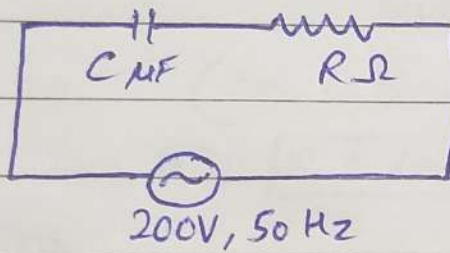 C μF R Ω
200V, 50 Hz